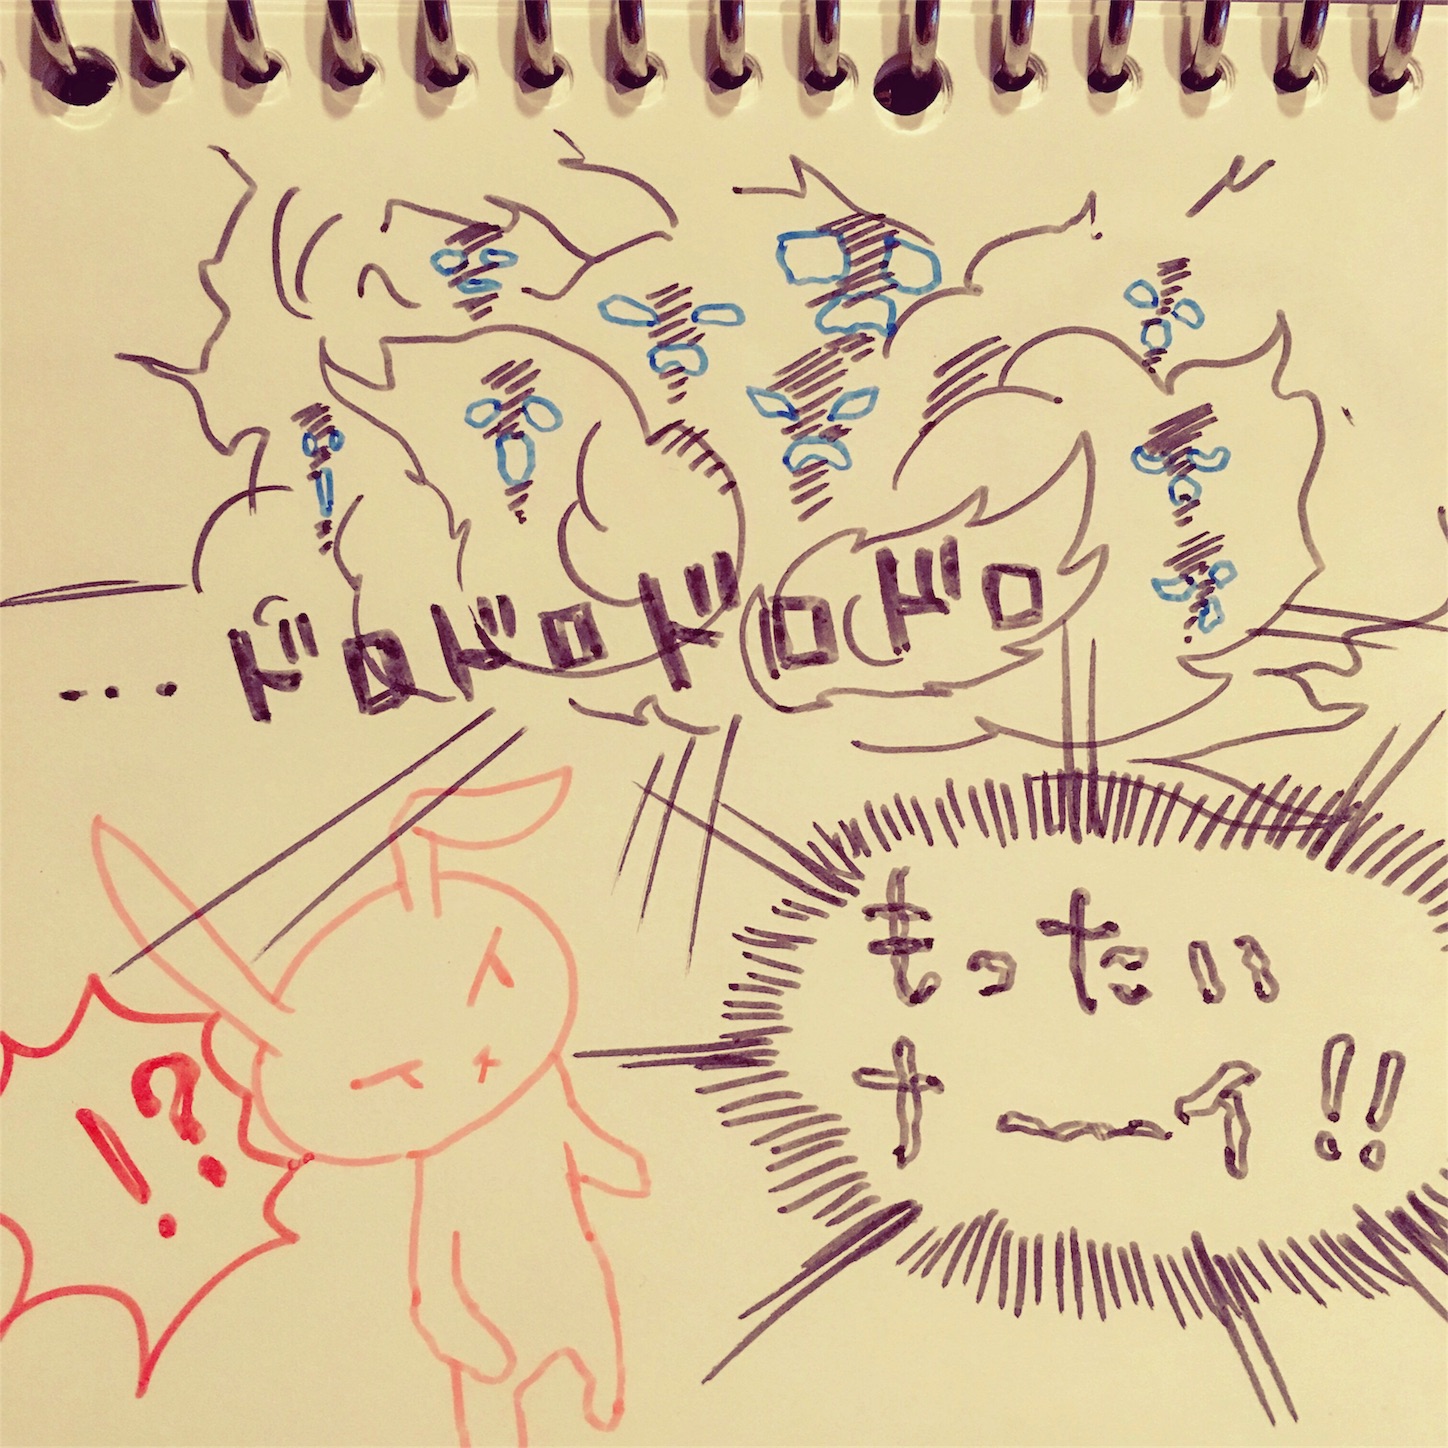 ...ドロドロドロドロ
もったい
ナーイ!!
!?